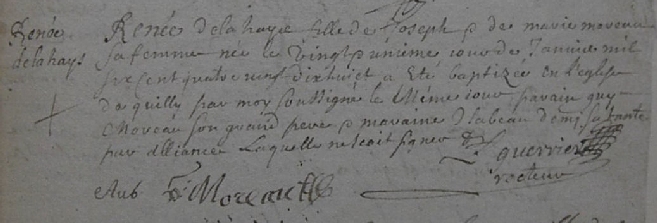 Renée
delahays
Renée delahaye fille de Joseph & de marie moreau
sa femme née le vingt unième iour de Janvier mil
six cent quatre vingt dixhuict a eté baptizée en l'eglise
de quilly par moy soussigné le Même iour parain guy
Moreau son grand pere & maraine Isabeau demy sa tante
par alliance laquelle ne scait signer
guerrier
recteur
Moreau